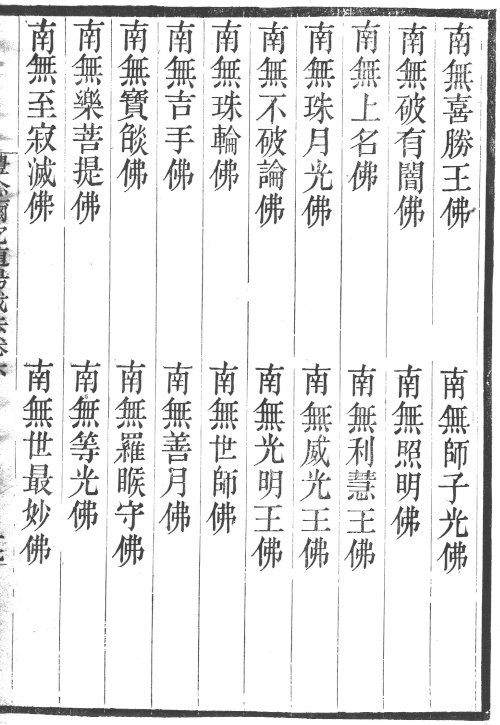 南無喜勝王佛　南無師子光佛
南無破有闇佛　南無照明佛
南無上名佛　南無利慧王佛
南無珠月光佛　南無威光王佛
南無不破論佛　南無光明王佛
南無珠輪佛　南無世師佛
南無吉手佛　南無善月佛
南無寶燄佛　南無羅睺守佛
南無樂菩提佛　南無等光佛
南無至寂滅佛　南無世最妙佛